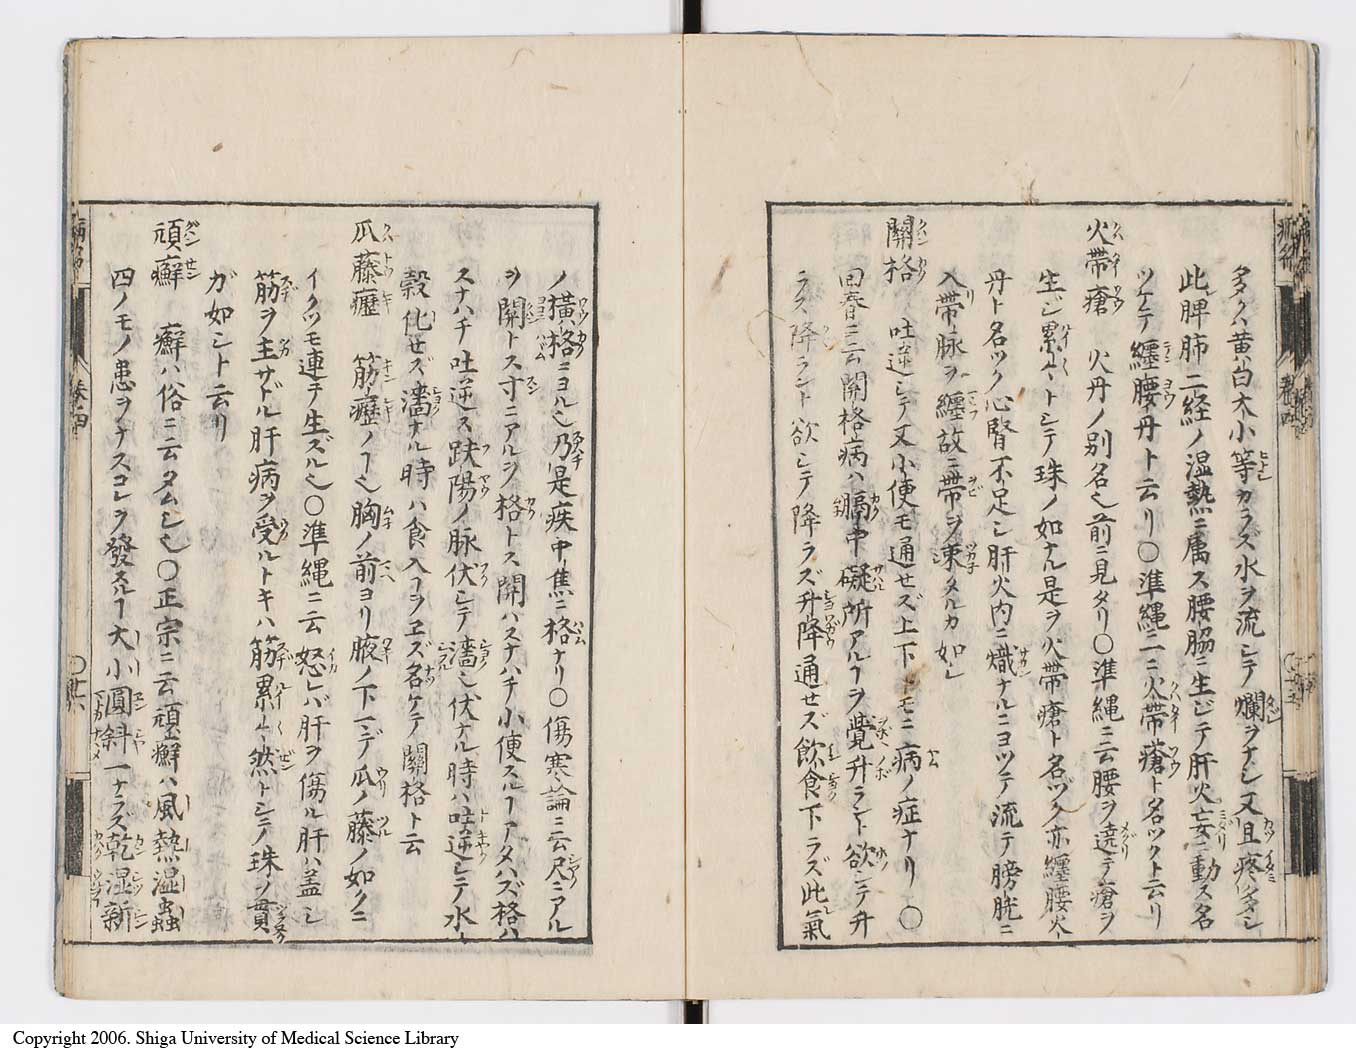 多クハ黄白大小等カラズ水ヲ流シテ爛ヲナシ又且疼多シ
此脾肺二経ノ湿熱ニ属ス腰脇ニ生ジテ肝火妄ニ動ス名
ツケテ纏腰丹ト云リ〇準縄ニニ火帶瘡ト名ツクト云リ
火帶瘡 火丹ノ別名也前ニ見タリ〇準縄ニ云腰ヲ遶テ瘡ヲ
生ジ累々トシテ珠ノ如ナル是ヲ火帶瘡ト名ヅク亦纏腰火
丹ト名ツク心腎不足シ肝火内ニ熾ナルニヨツテ流テ膀胱ニ
入帶脉ヲ纏故ニ帶ヲ束タルカ如し
關格 吐逆シテ又小便モ通セズ上下トモニ病ノ症ナリ〇
回春ニ云関格病ハ膈中礙所アルヿヲ覺升ラント欲シテ升
ラズ降ラント欲シテ降ラズ升降通せズ飲食下ラズ此氣
ノ横格ニヨル也乃是疾中焦ニ格ナリ〇傷寒論ニ云尺ニアル
ヲ関トス寸ニアルヲ格トス関ハスナハチ小便スルヿアタハズ格ハ
スナハチ吐逆ス趺陽ノ脉伏シテ濇シ伏ナル時ハ吐逆シテ水
穀化せズ濇ナル時ハ食入ヿヲヱズ名ケテ關格ト云
瓜藤癧 筋癧ノヿ也胸ノ前ヨリ腋ノ下マデ瓜ノ藤ノ如クニ
イクツモ連テ生ズル也〇準縄ニ云怒レバ肝ヲ傷ル肝ハ盖シ
筋ヲ主サドル肝病ヲ受ルトキハ筋累々然トシテ珠ノ貫
ガ如シト云リ
頑癬 癬ハ俗ニ云タムシ也〇正宗ニ云頑癬ハ風熱湿蟲
四ノモノ患ヲナスコレヲ發スルヿ大小圓斜一ナラズ乾湿新
巻四
Copyright 2006. Shiga University of Medical Science Library